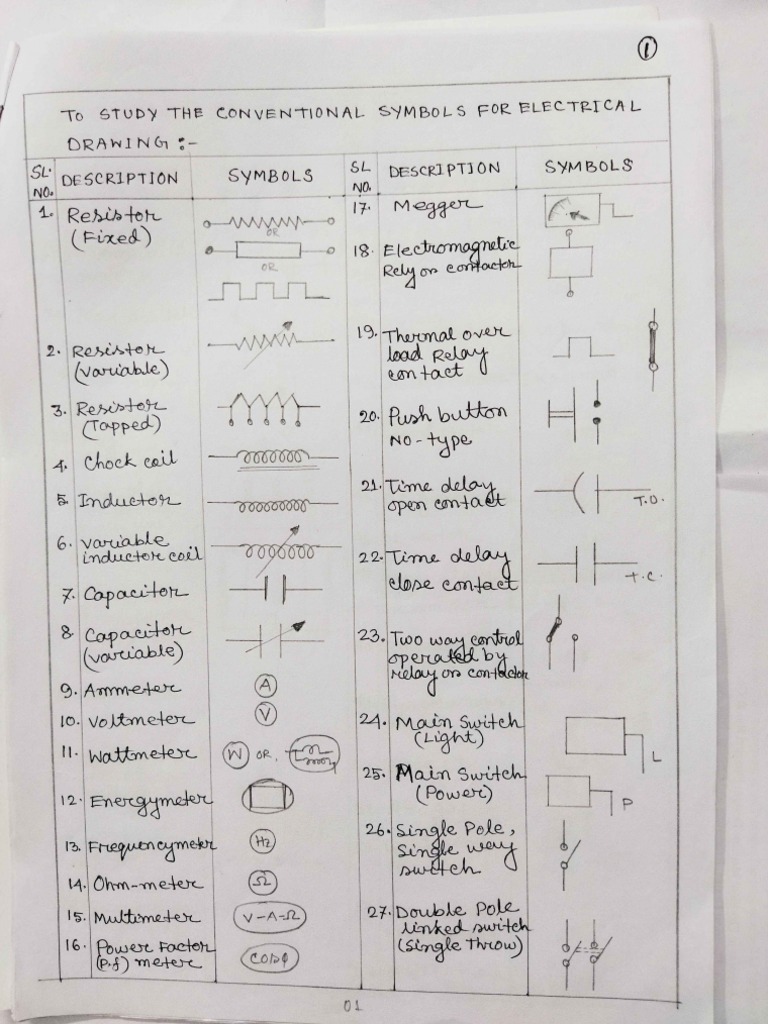 1
TO STUDY THE CONVENTIONAL SYMBOLS FOR ELECTRICAL
DRAWING :-
SL. NO. DESCRIPTION SYMBOLS
1. Resistor
(Fixed)
OR
OR
2. Resistor
(variable)
3. Resistor
(Tapped)
4. Chock coil
5. Inductor
6. variable
inductor coil
7. Capacitor
8. Capacitor
(variable)
9. Ammeter A
10. Voltmeter V
11. Wattmeter W OR,
12. Energymeter
13. Frequencymeter Hz
14. Ohm-meter Ω
15. Multimeter V-A-Ω
16. Power Factor
(P.f) meter COSϕ
SL NO. DESCRIPTION SYMBOLS
17. Megger
18. Electromagnetic
Rely or contactor
19. Thermal over
load Relay
contact
20. Push button
NO-type
21. Time delay
open contact T.O.
22. Time delay
close contact T.C.
23. Two way control
operated by
relay or contactor
24. Main Switch
(Light) L
25. Main Switch
(Power) P
26. Single Pole,
Single way
switch
27. Double Pole
linked switch
(Single Throw)
01